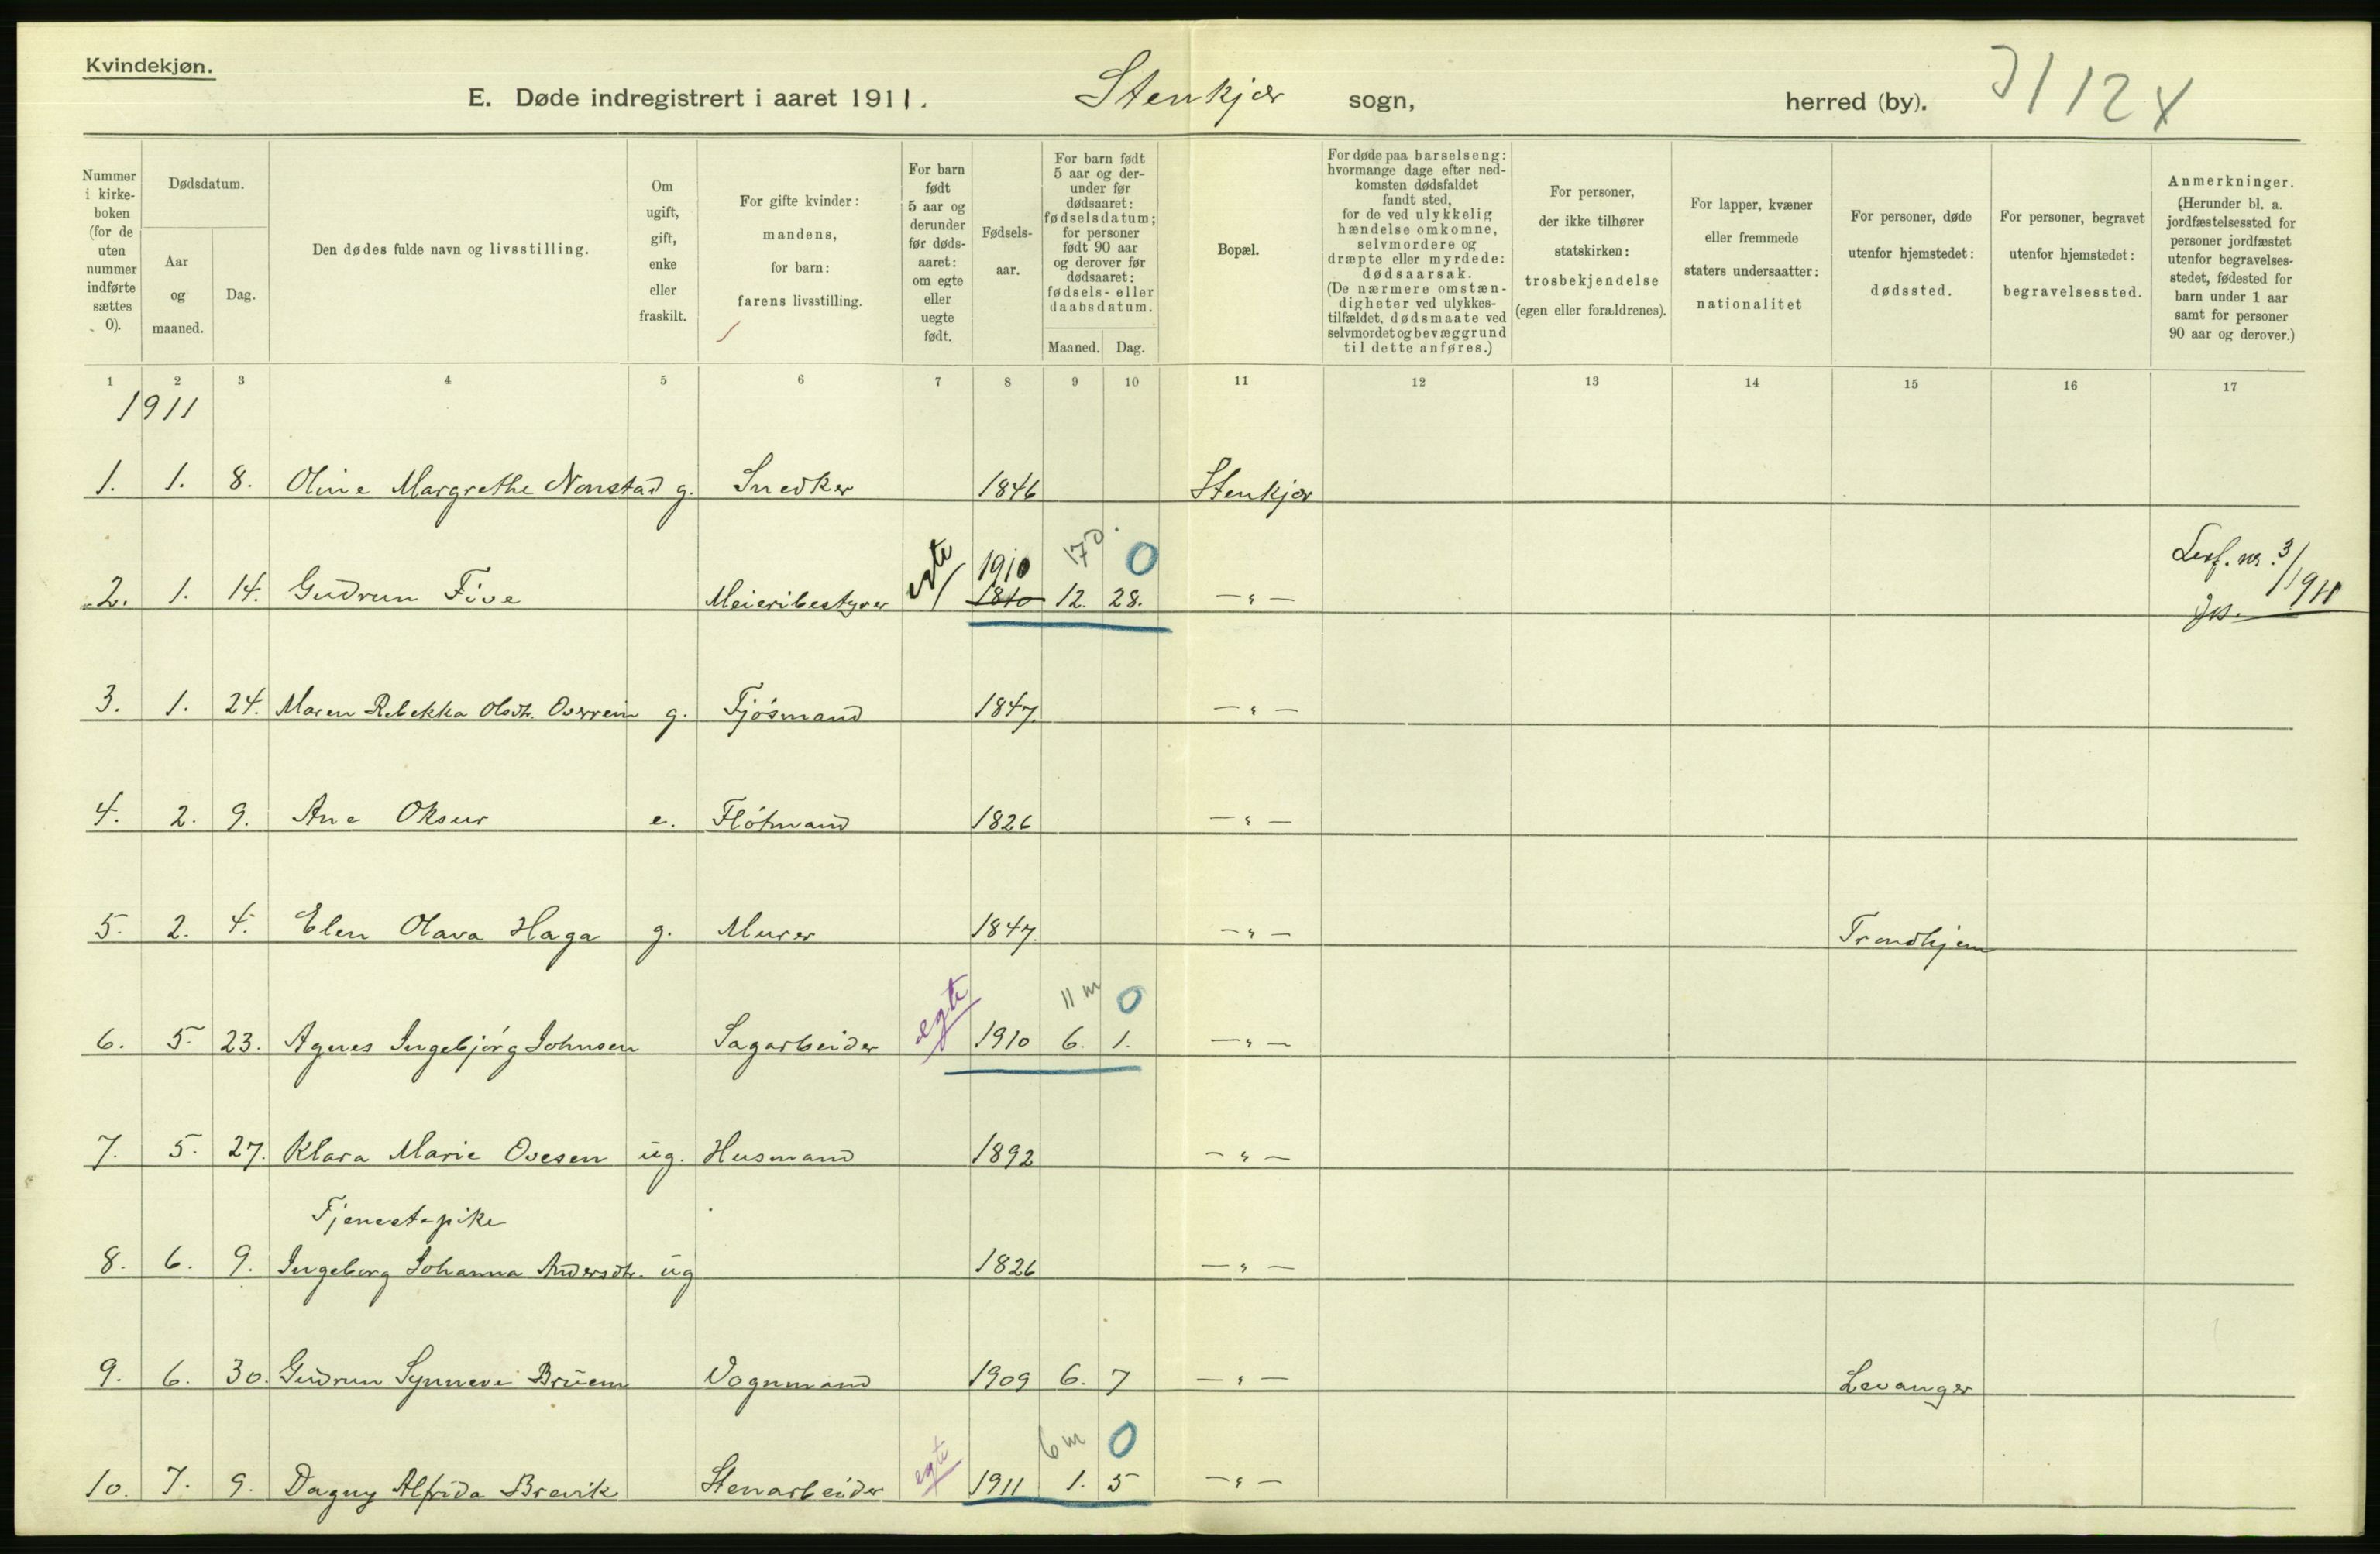 Kvindekjøn.
E. Døde indregistrert i aaret 1911. Stenkjær sogn, herred (by).
Nummer i kirkeboken (for de uten nummer indførte sættes 0).
Dødsdatum.
Aar og maaned.
Dag.
Den dødes fulde navn og livsstilling.
Om ugift, gift, enke eller fraskilt.
For gifte kvinder: mandens, for barn: farens livsstilling.
For barn født 5 aar og derunder før dødsaaret: om egte eller uegte født.
Fødselsaar.
For barn født 5 aar og derunder før dødsaaret: fødselsdatum; for personer født 90 aar og derover før dødsaaret: fødsels- eller daabsdatum.
Maaned. Dag.
Bopæl.
For døde paa barselseng: hvormange dage efter nedkomsten dødsfaldet fandt sted, for de ved ulykkelig hændelse omkomne, selvmordere og dræpte eller myrdede: dødsaarsak. (De nærmere omstændigheter ved ulykkestilfældet, dødsmaate ved selvmordet og bevæggrund til dette anføres.)
For personer, der ikke tilhører statskirken: trosbekjendelse (egen eller forældrenes).
For lapper, kvæner eller fremmede staters undersaatter: nationalitet
For personer, døde utenfor hjemstedet: dødssted.
For personer, begravet utenfor hjemstedet: begravelsessted.
Anmerkninger. (Herunder bl. a. jordfæstelsessted for personer jordfæstet utenfor begravelsesstedet, fødested for barn under 1 aar samt for personer 90 aar og derover.)
1 2 3 4 5 6 7 8 9 10 11 12 13 14 15 16 17
1911
1. 1. 8. Oline Margrethe Nonstad g. Snedker 1846 Stenkjær
1910 17 d. 0
2. 1. 14. Gudrun Five Meieribestyrer egte 1810 12. 28. — „ — 3/1911
3. 1. 24. Maren Rebekka Olsdtr. Overrein g. Fjøsmand 1847. — „ —
4. 2. 9. Ane Oksur e. Fløtmand 1826 — „ —
5. 2. 4. Elen Olava Haga g. Murer 1847. — „ — Trondhjem
11 m 0
6. 5. 23. Agnes Ingebjørg Johnsen Sagarbeider egte 1910 6. 1. — „ —
7. 5. 27. Klara Marie Ovesen ug. Husmand 1892 — „ —
Tjenestepike
8. 6. 9. Ingeborg Johanna Andersdtr. ug 1826 — „ —
9. 6. 30. Gudrun Synneve Bruem Vognmand 1909 6. 7 — „ — Levanger
6 m 0
10. 7. 9. Dagny Alfrida Brevik Stenarbeider egte 1911 1. 5 — „ —